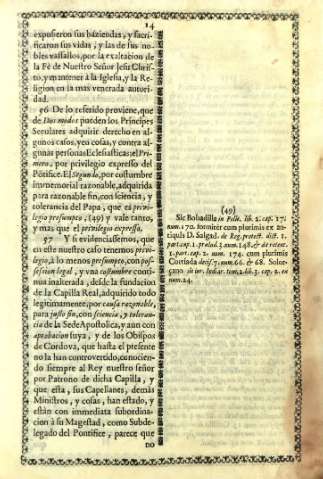 14
expusieron sus haziendas, y sacri-
ficaron sus vidas, y las de sus no-
bles vassallos, por la exaltacion de
la Fè de Nuestro Señor Jesu Chris-
to, y mantener à la Iglesia, y la Re-
ligion en la mas venerada autori-
dad.
96 De lo referido proviene, que
de Dos modos pueden los Principes
Seculares adquirir derecho en al-
gunos casos, yea cosas, y contra al-
gunas personas Eclesiasticas: el Pri-
mero, por privilegio expresso del
Pontifice. El Segundo, por costumbre
immemorial razonable, adquirida
para razonable fin, con sciencia, y
tolerancia del Papa, que es privi-
legio presumpto, (49) y vale tanto,
y mas que el privilegio expresso.
97 Y si evidenciassemos, que
en este nuestro caso tenemos privi-
legio, à lo menos presumpto, con pos-
session legal, y vna costumbre conti-
nua inalterada, desde la fundacion
de la Capilla Real, adquirido todo
legitimamente, por causa razonable,
para justo fin, con sciencia, y toleran-
cia de la Sede Apostolica, y aun con
aprobacion suya, y de los Obispos
de Cordova, que hasta el presente
no la han controvertido, conocien-
do siempre al Rey nuestro señor
por Patrono de dicha Capilla, y
que esta, sus Capellanes, demàs
Ministros, y cosas, han estado, y
estàn con immediata subordina-
cion à su Magestad, como Subde-
legado del Pontifice, parece que
no
(49)
Sic Bobadilla in Polit. lib. 2. cap. 17.
num. 170. fortiter cum plurimis ex an-
tiquis D. Salgad. de Reg. protect. dict. 1.
part. cap. 1. prælud. 3. num. 148. & de retent.
1. part. cap. 2. num. 174. cum plurimis
Cortiada decis. 7. num. 66. & 68. Solor-
çano in iur. Indiar. tom. 2. lib. 3. cap. 2. ex
num. 24.